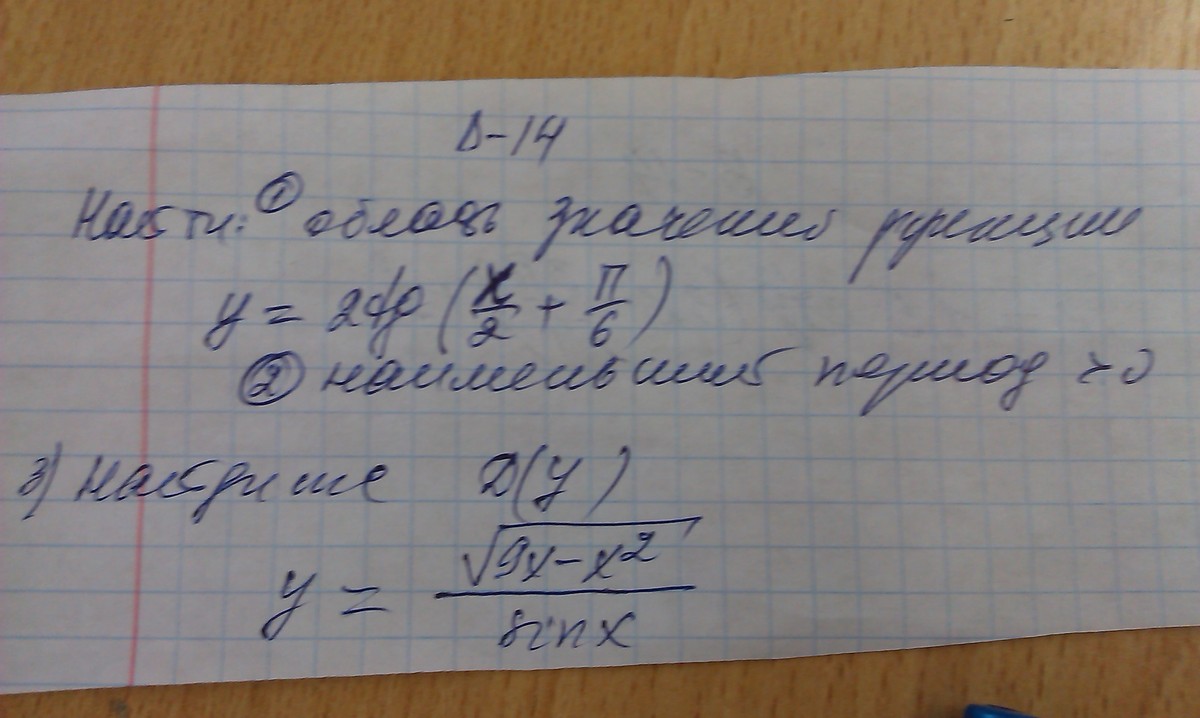 Δ-14
Найти: ① область значений функции
y = 2tg (x/2 + π/6)
② наименьший период >0
3) Найдите D(y)
y = √(9x-x²) / sinx